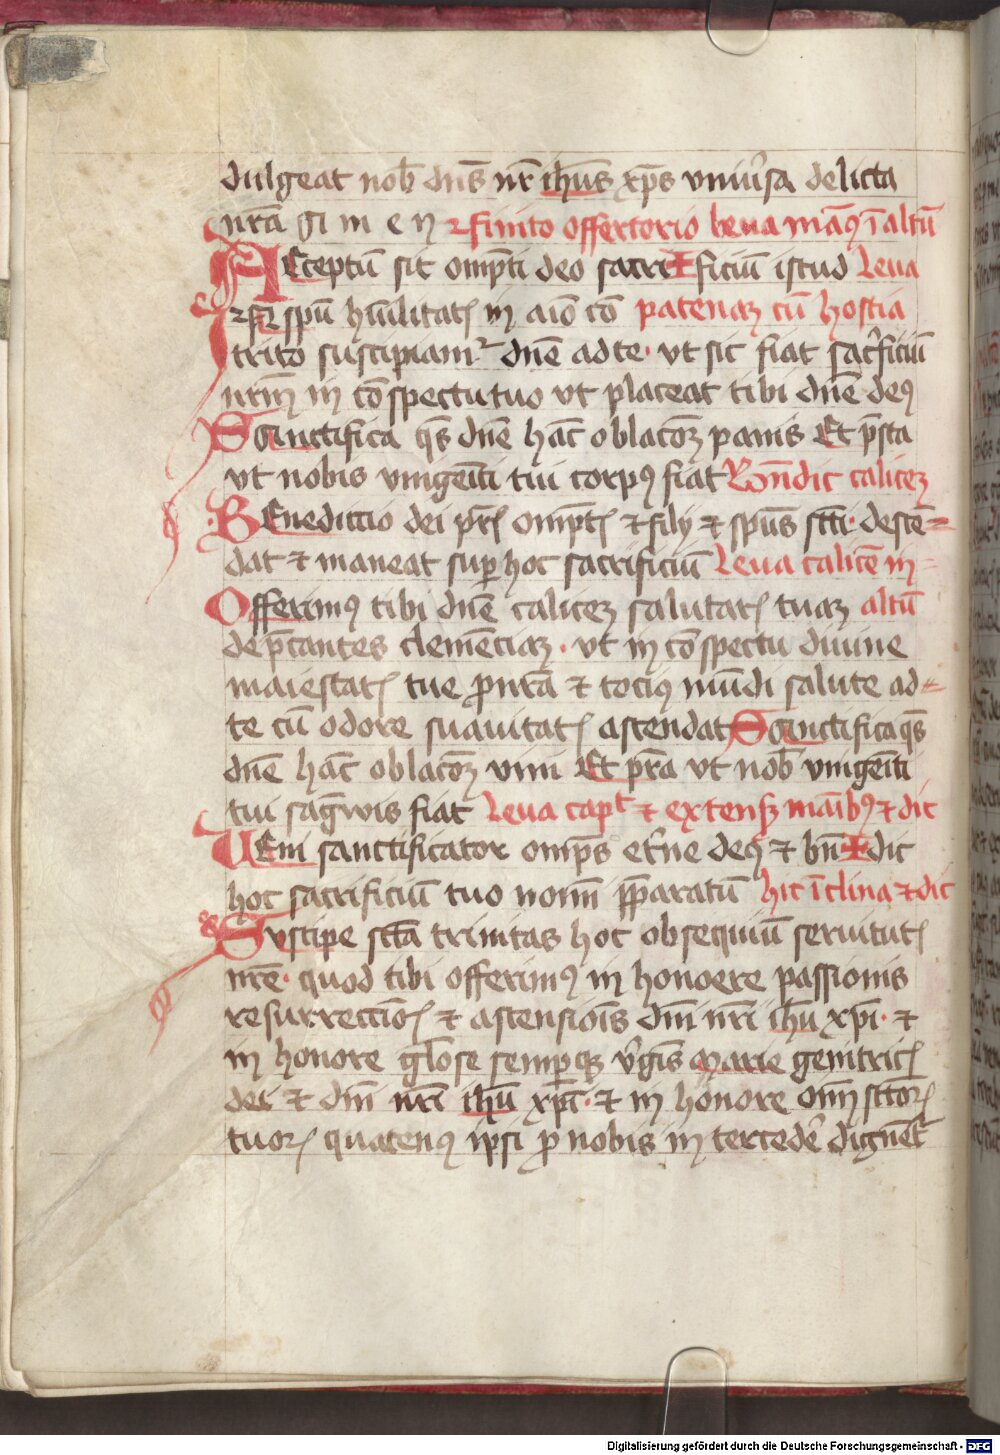 dulgeat nob̄ dn̄s nr̄ ih̄us xp̄s vniu̓sa delicta
nr̄a Gi m e n Finito offertorio leua man̄ꝯ ī altū
ACceptū sit omp̄ti deo sacri✠ficiū istud leua
spū hūilitatꝭ in aīo cō patenaꝫ cū hostia
trito suscipiamᷣ dn̄e ad te · vt sic fiat sacͬficiū
nrm̄ in cō spectu tuo vt placeat tibi dn̄e deꝯ
Sanctifica qs̄ dn̄e hāc oblacōꝫ panis Et p̄sta
vt nobis vnigēiti tui corpꝯ fiat Bn̄dic caliceꝫ
BEnedictio dei pr̄ꝭ omp̄tꝭ ⁊ filij ⁊ spūs sct̄i · descē=
dat ⁊ maneat suꝑ hoc sacrificiū leua calicē in=
Offerimꝯ tibi dn̄e caliceꝫ salutarꝭ tuaꝫ altū
dep̄cantes clemēciaꝫ · vt in cō spectu diuine
maiestatꝭ tue ꝓ nr̄a ⁊ tociꝯ mūdi salute ad=
te cū odore suauitatꝭ ascendat Sanctifica qs̄
dn̄e hāc oblacōꝫ vini Et p̄ra vt nob̄ vnigēiti
tui sag̅wis fiat leua capᵗ ⁊ extensꝭ maībꝯ ⁊ dic
UEni sanctificator omp̄s et̓ne deꝯ ⁊ bn̄✠dic
hoc sacrificiū tuo noīni p̄paratū hic īclina ⁊ dic
Suscipe sct̄a trinitas hoc obsequiū seruitutꝭ
nr̄e · quod tibi offerimꝯ in honoere passionis
resurreccioꝭ ⁊ ascensioīs dn̄i nr̄i ih̄u xp̄i · ⁊
in honore gl̄ose semꝑqꝫ v̓gīs Marie genitricꝭ
dei ⁊ dn̄i nr̄i ih̄u xp̄i · ⁊ in honore om̄ sct̄orꝭ
tuorꝭ quatenꝯ ipsi ꝓ nobis in tercede̓ dignēt᷑
Digitalisierung gefördert durch die Deutsche Forschungsgemeinschaft - DFG